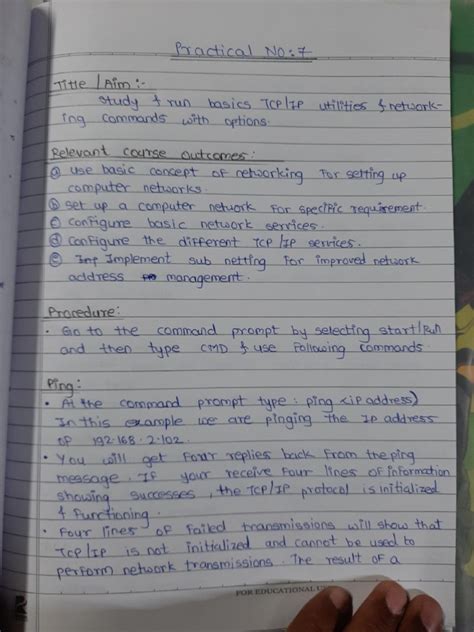 Practical No:7
Title/Aim:-
Study & run basics TCP/IP utilities & network-
ing commands with options.
Relevant course outcomes:
ⓐ use basic concept of networking for setting up
computer networks.
ⓑ set up a computer network for specific requirement.
ⓒ configure basic network services.
ⓓ configure the different TCP/IP services.
ⓔ Implement sub netting for improved network
address management.
Procedure:
• Go to the command prompt by selecting start/Run
and then type CMD & use following commands.
Ping:
• At the command prompt type: ping <ip address)
In this example we are pinging the IP address
of 192.168.2.102.
• You will get four replies back from the ping
message. If your receive four lines of information
showing successes, the TCP/IP protocol is initialized
& functioning.
• Four lines of failed transmissions will show that
TCP/IP is not initialized and cannot be used to
perform network transmissions. The result of a
FOR EDUCATIONAL U